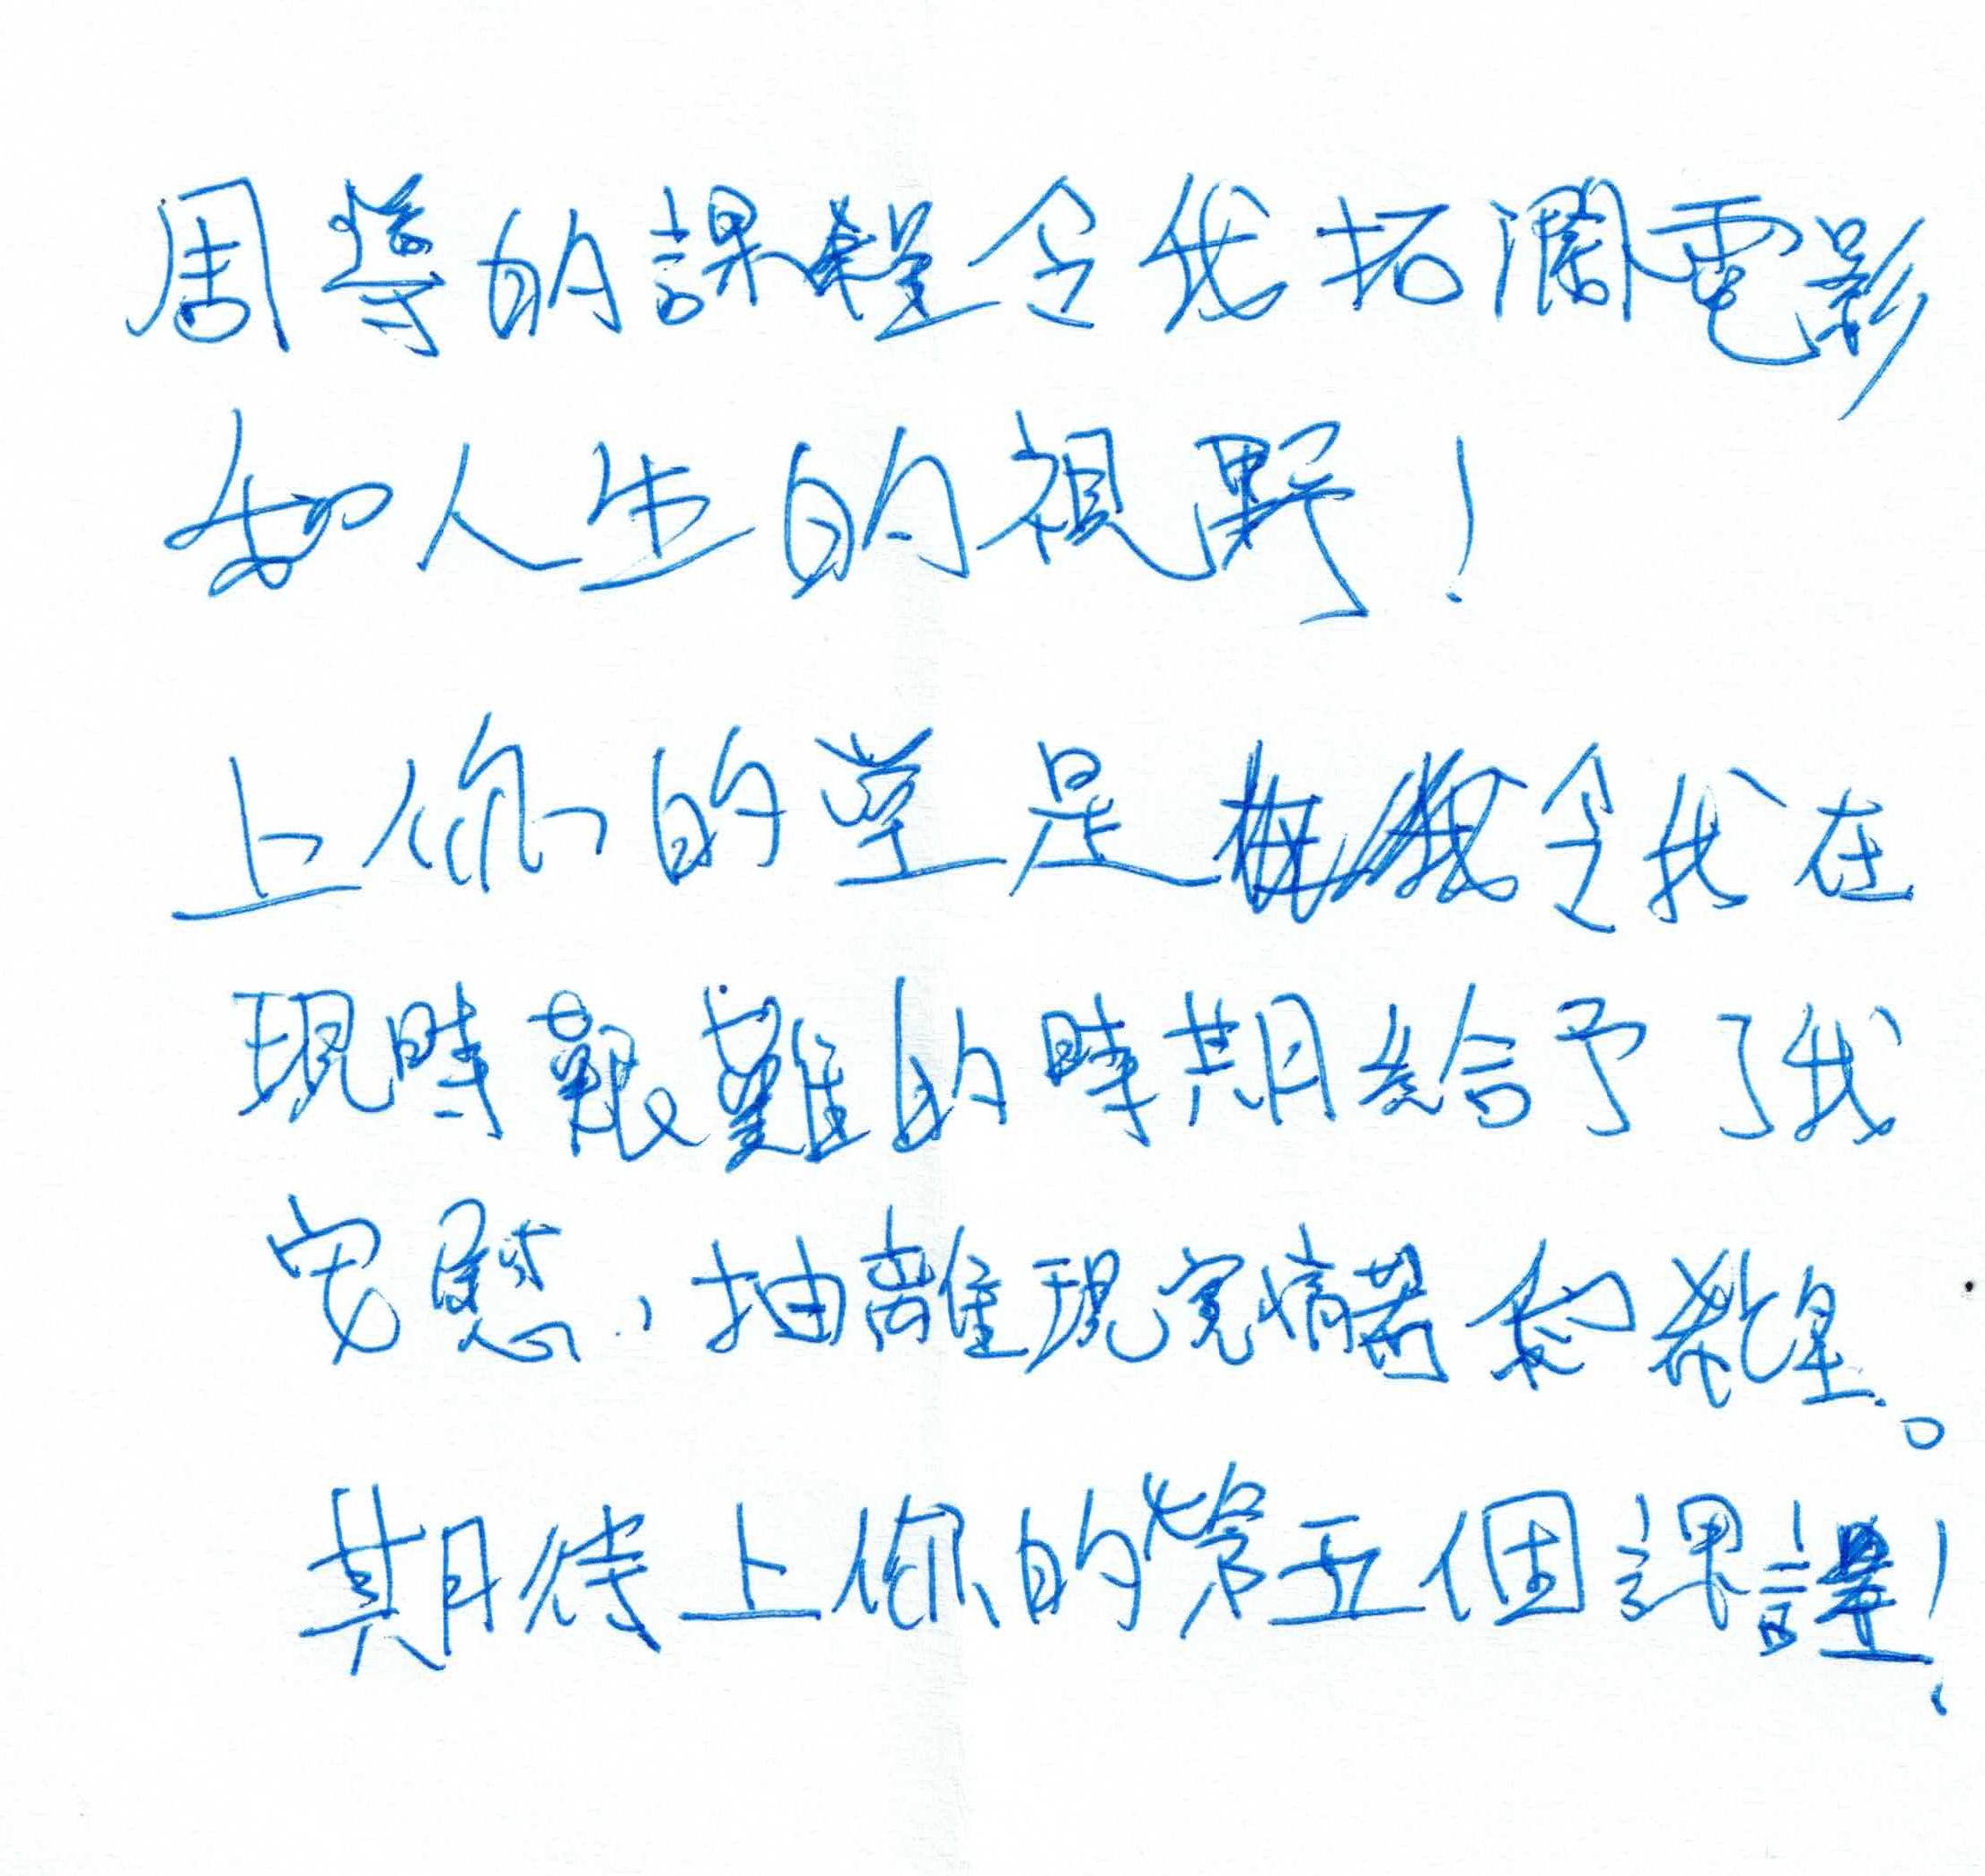 周導的課程令我拓濶電影
如人生的視野！
上你的堂是令我在
現時艱難的時期給予了我
安慰，抽離現實情緒和希望。
期待上你的第五個課課！